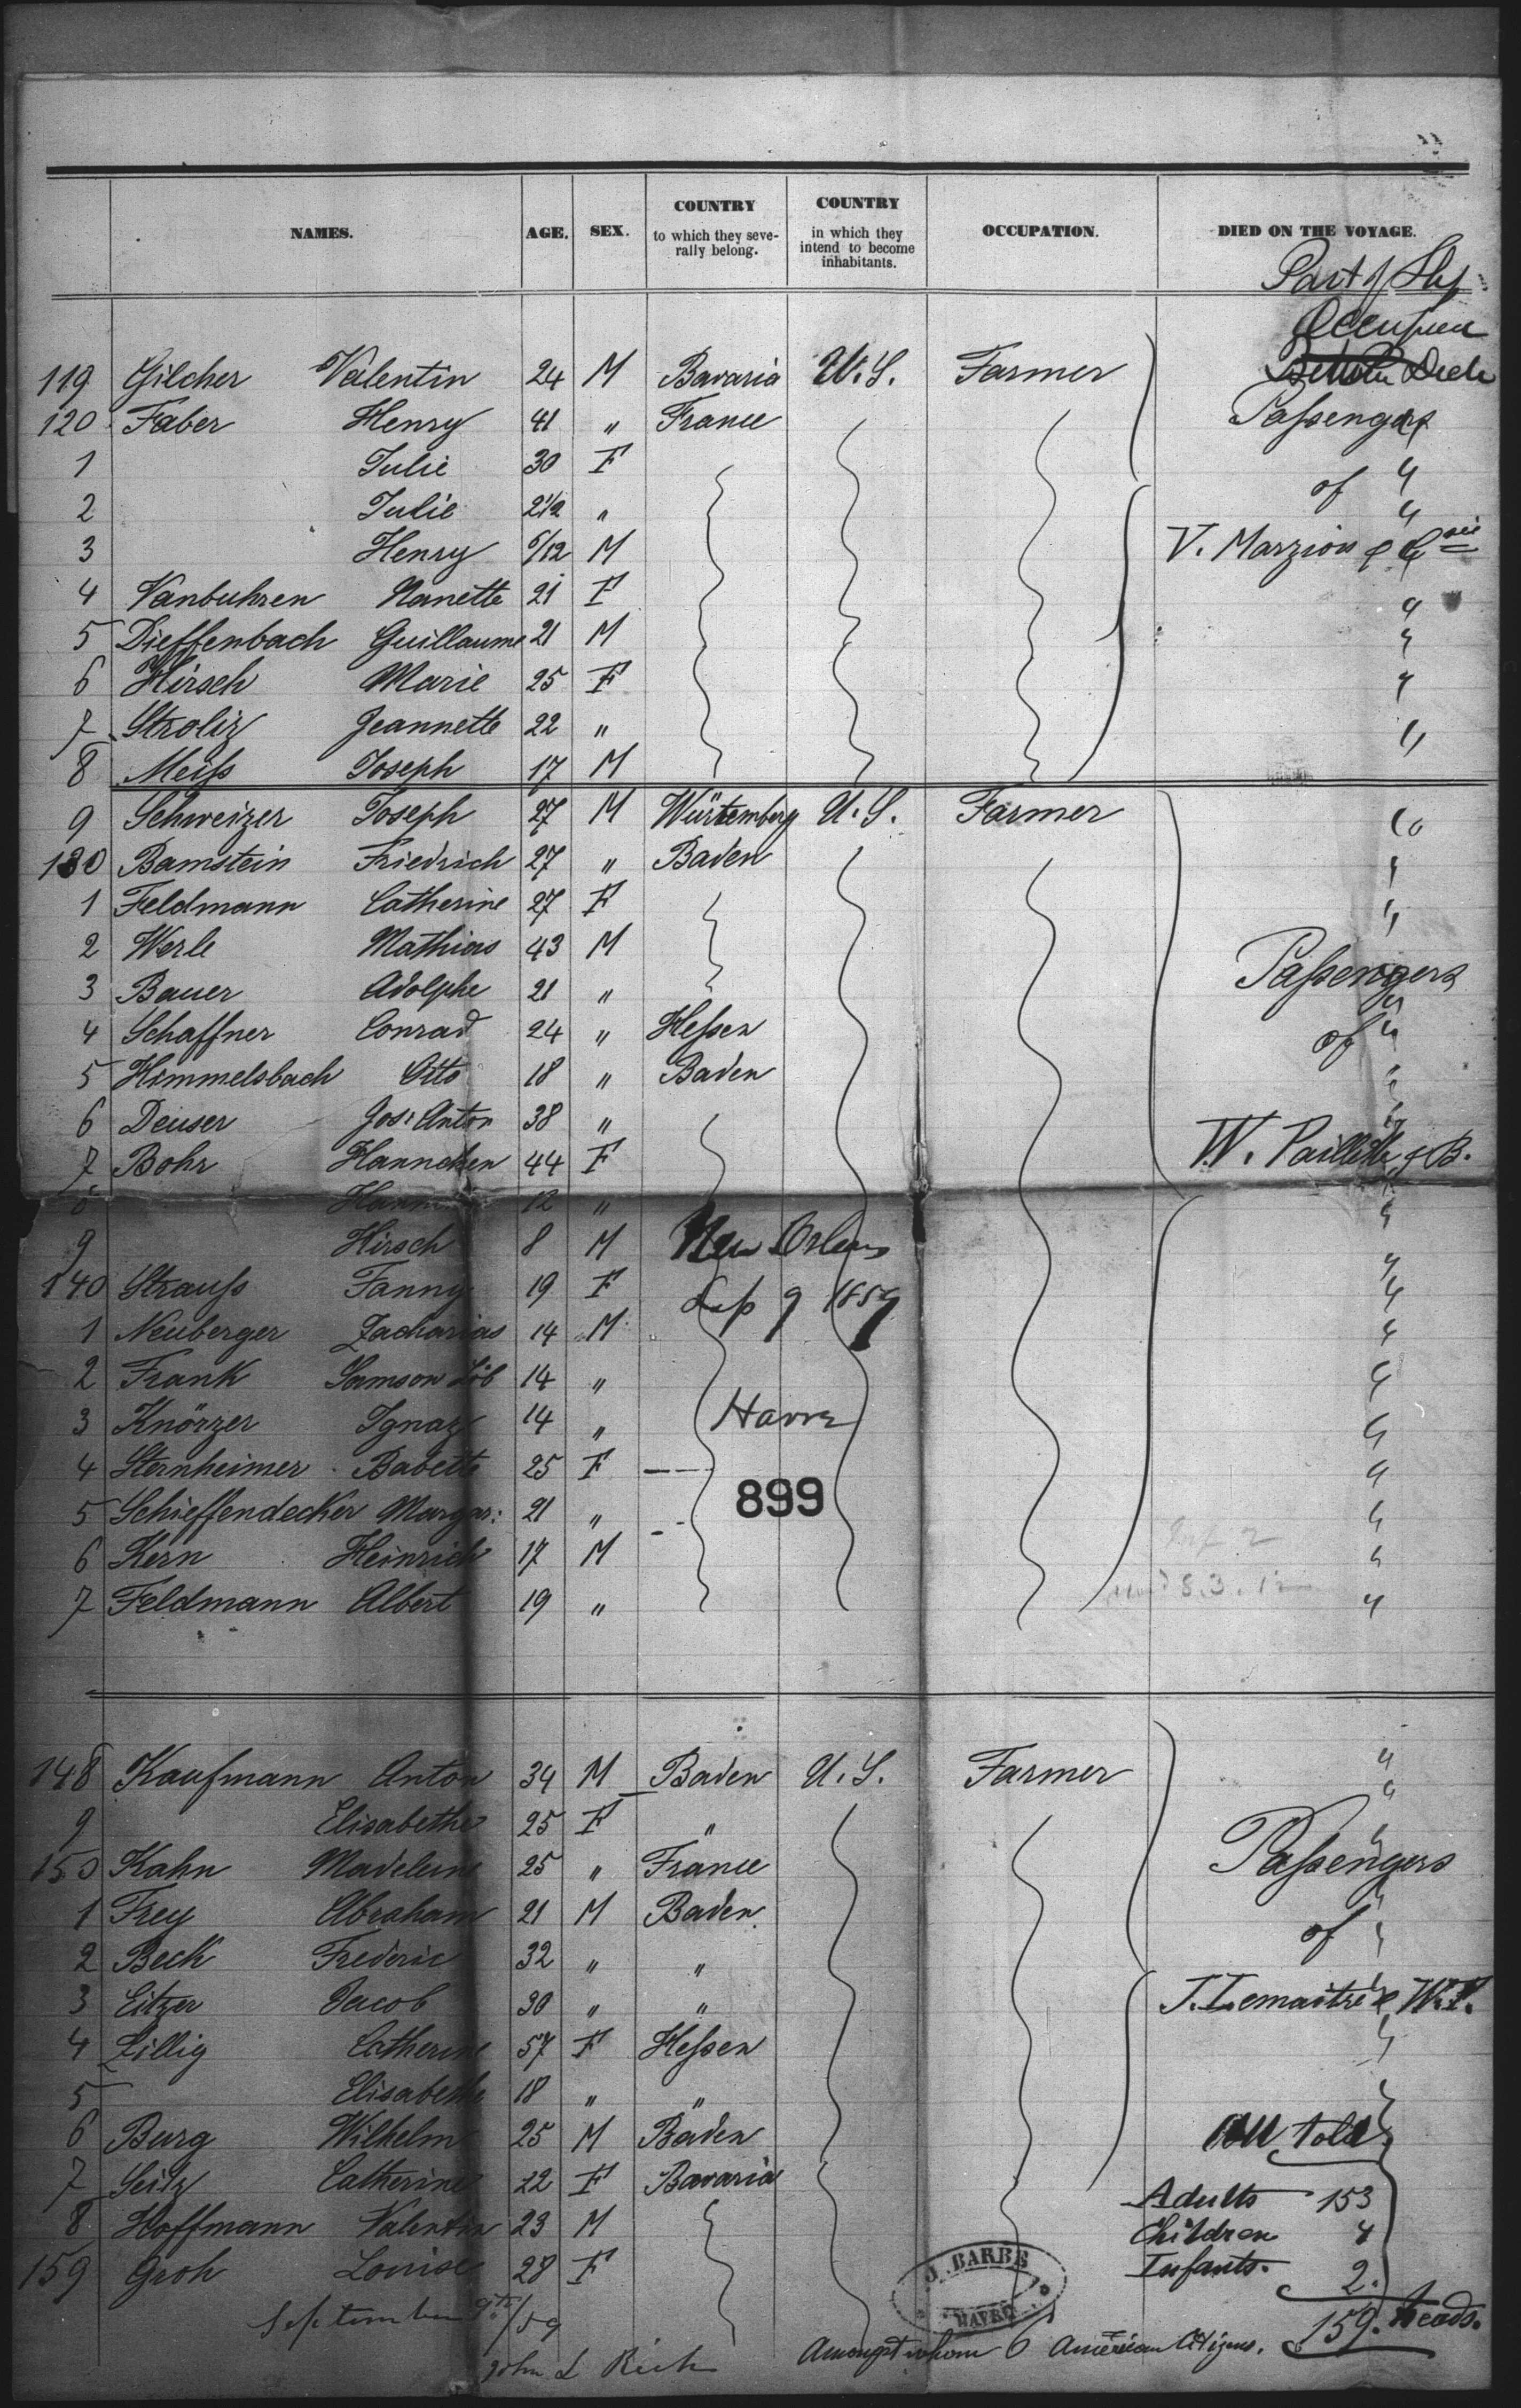 NAMES. AGE. SEX. COUNTRY to which they seve-rally belong. COUNTRY in which they intend to become inhabitants. OCCUPATION. DIED ON THE VOYAGE.
Part of
119 Gilcher Valentin 24 M Bavaria U.S. Farmer Deck
120 Faber Henry 41 " France Passengers
1 Julie 30 F "
2 Julie 2 1/2 " of "
3 Henry /12 M V. Marzion &
4 Vanbuhren Nanette 21 F "
5 Dieffenbach Guillaume 21 M "
6 Hirsch Marie 25 F "
7 Stroliz Jeannette 22 " "
8 Meiss Joseph 17 M
9 Schweizer Joseph 27 M Würtemberg U.S. Farmer "
130 Bamstein Friedrich 27 " Baden "
1 Feldmann Catherine 27 F "
2 Werle Mathias 43 M
3 Bauer Adolphe 21 " Passengers
4 Schaffner Conrad 24 " Hessen of "
5 Himmelsbach Otto 18 " Baden "
6 Deuser Jos: Anton 38 " "
7 Bohr Hannchen 44 F W. Paillette & B.
8 12 " "
9 Hirsch 8 M New Orleans "
140 Strauss Fanny 19 F Sep 9 1859 "
1 Neuberger Zacharias 14 M "
2 Frank Samson Löb 14 " "
3 Knörzer Ignaz 14 " Havre "
4 Sternheimer Babette 25 F "
899
5 Schieffendecker Margar: 21 " "
6 Kern Heinrich 17 M "
7 Feldmann Albert 19 " "
148 Kaufmann Anton 34 M Baden U.S. Farmer "
9 Elisabethe 25 F " "
150 Kahn Madeleine 25 " France Passengers
1 Frey Abraham 21 M Baden "
2 Beck Frederic 32 " " of "
3 Eitzer Jacob 30 " " J. Lemaitre & W.
4 Zillig Catherine 57 F Hessen "
5 Elisabethe 18 " " "
6 Burg Wilhelm 25 M Baden All told
7 Seitz Catherine 22 F Bavaria Adults 153
8 Hoffmann Valentin 23 M Children 4
159 Groh Louise 28 F Infants. 2.
159. heads.
J. BARBE HAVRE
September 9th/59
John L Rich Amongst whom 6 American Citizens.